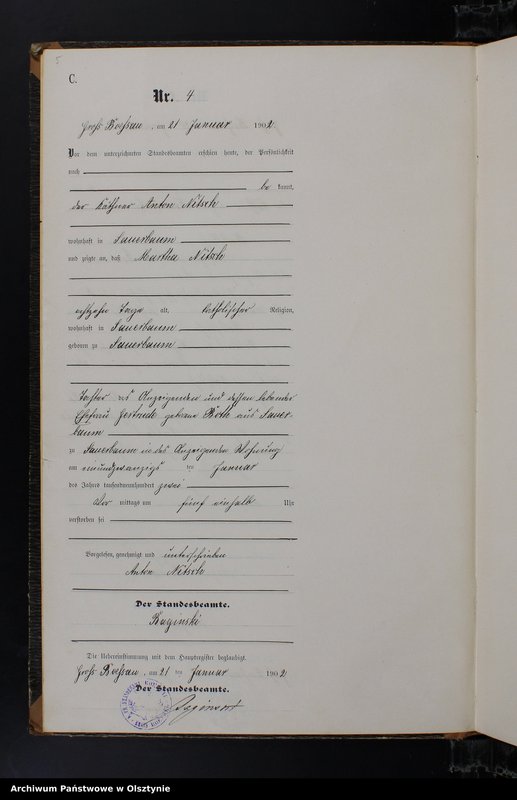 C.
Nr. 4
Groß Bößau, am 21 Januar 1902.
Vor dem unterzeichneten Standesbeamten erschien heute, der Persönlichkeit
nach
be kannt,
der Käthner Anton Nitsch
wohnhaft in Sauerbaum
und zeigte an, daß Martha Nitsch
achtzehn Tage alt, katholischer Religion,
wohnhaft in Sauerbaum
geboren zu Sauerbaum
Tochter des Anzeigenden und dessen lebender
Ehefrau Gertrude geborene aus Sauer
baum
zu Sauerbaum in des Anzeigenden Wohnung
am einundzwanzigs ten Januar
des Jahres tausendneunhundert zwei
Vor mittags um fünf einhalb Uhr
verstorben sei
Vorgelesen, genehmigt und unterschrieben
Anton Nitsch
Der Standesbeamte.
Die Uebereinstimmung mit dem Hauptregister beglaubigt.
Groß Bößau, am 21 ten Januar 1902
Der Standesbeamte.
Archiwum Państwowe w Olsztynie